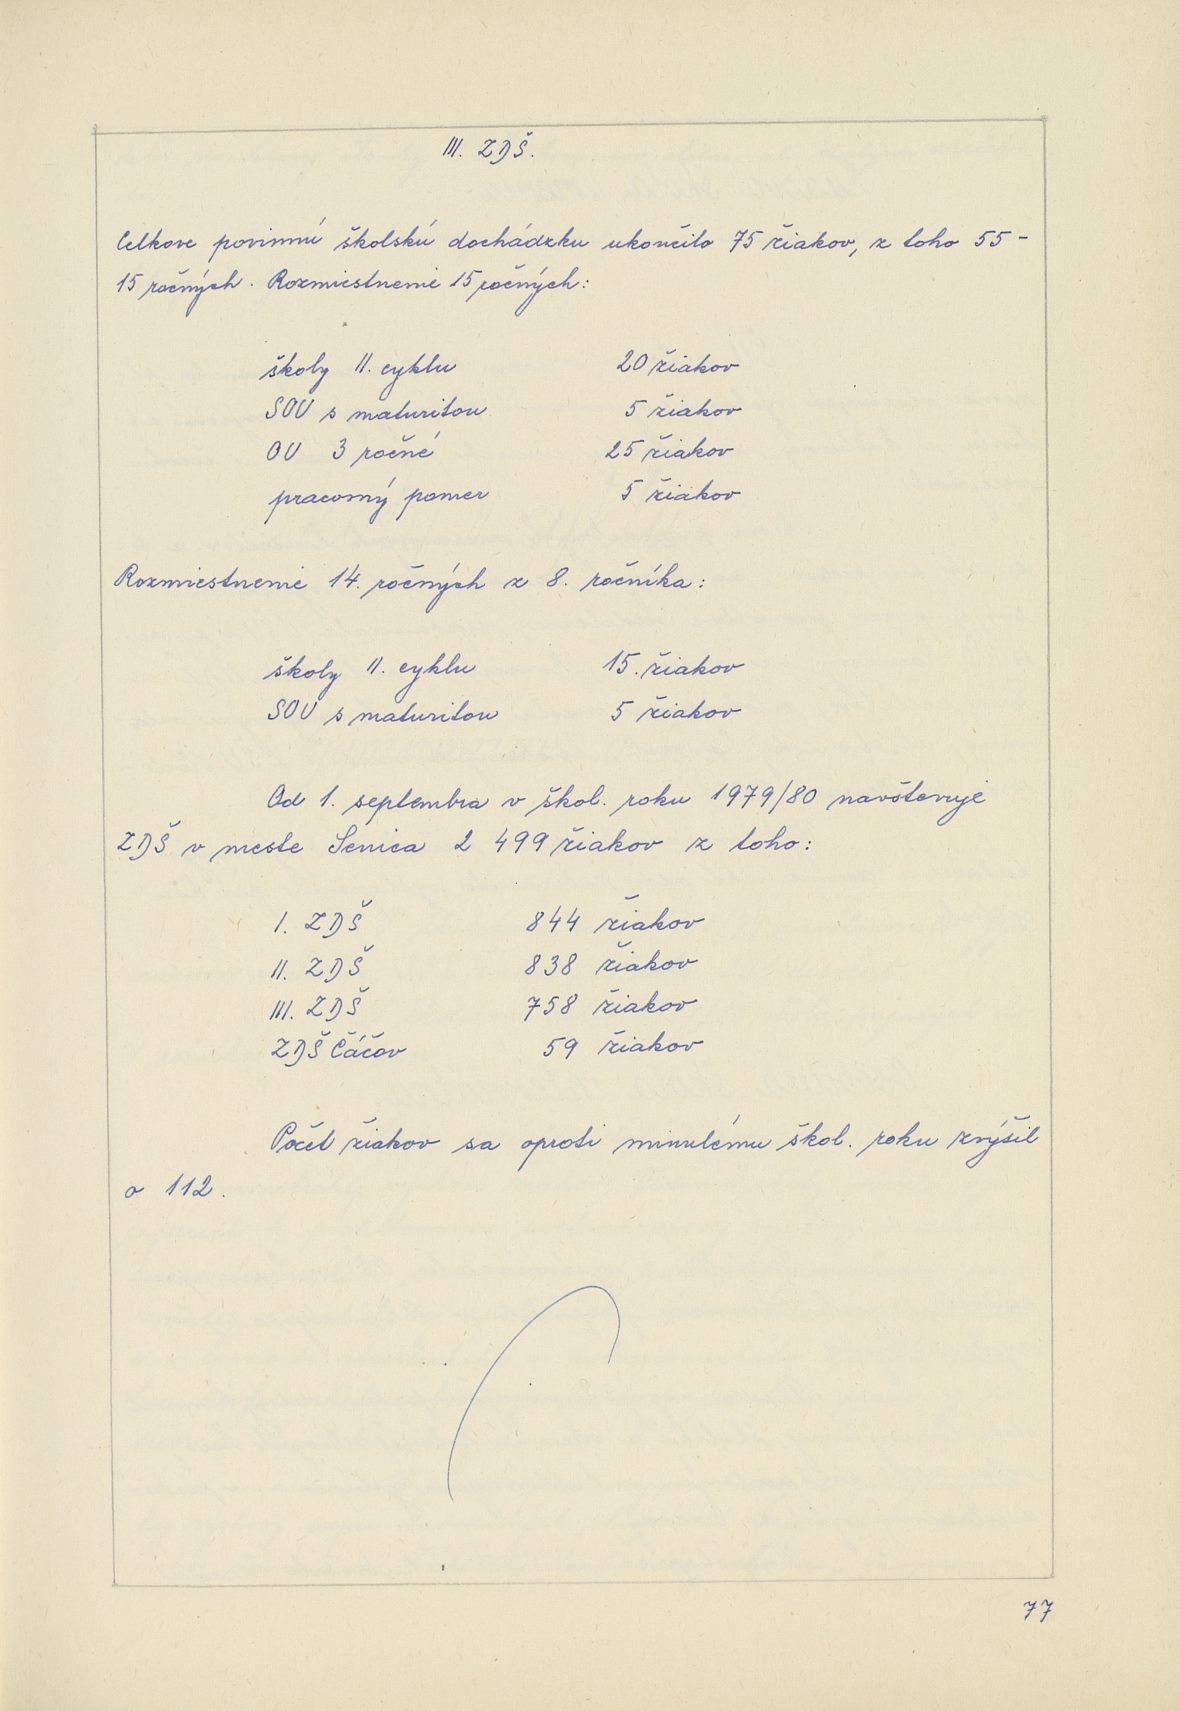 III. ZDŠ.
Celkove povinnú školskú dochádzku ukončilo 75 žiakov, z toho 55 -
15 ročných. Rozmiestnenie 15 ročných:
školy II. cyklu 20 žiakov
SOU s maturitou 5 žiakov
OU 3 ročné 25 žiakov
pracovný pomer 5 žiakov
Rozmiestnenie 14. ročných z 8. ročníka:
školy II. cyklu 15. žiakov
SOU s maturitou 5 žiakov
Od 1. septembra v škol. roku 1979/80 navštevuje
ZDŠ v meste Senica 2 499 žiakov z toho:
I. ZDŠ 844 žiakov
II. ZDŠ 838 žiakov
III. ZDŠ 758 žiakov
ZDŠ Čáčov 59 žiakov
Počet žiakov sa oproti minulému škol. roku zvýšil
o 112.
77